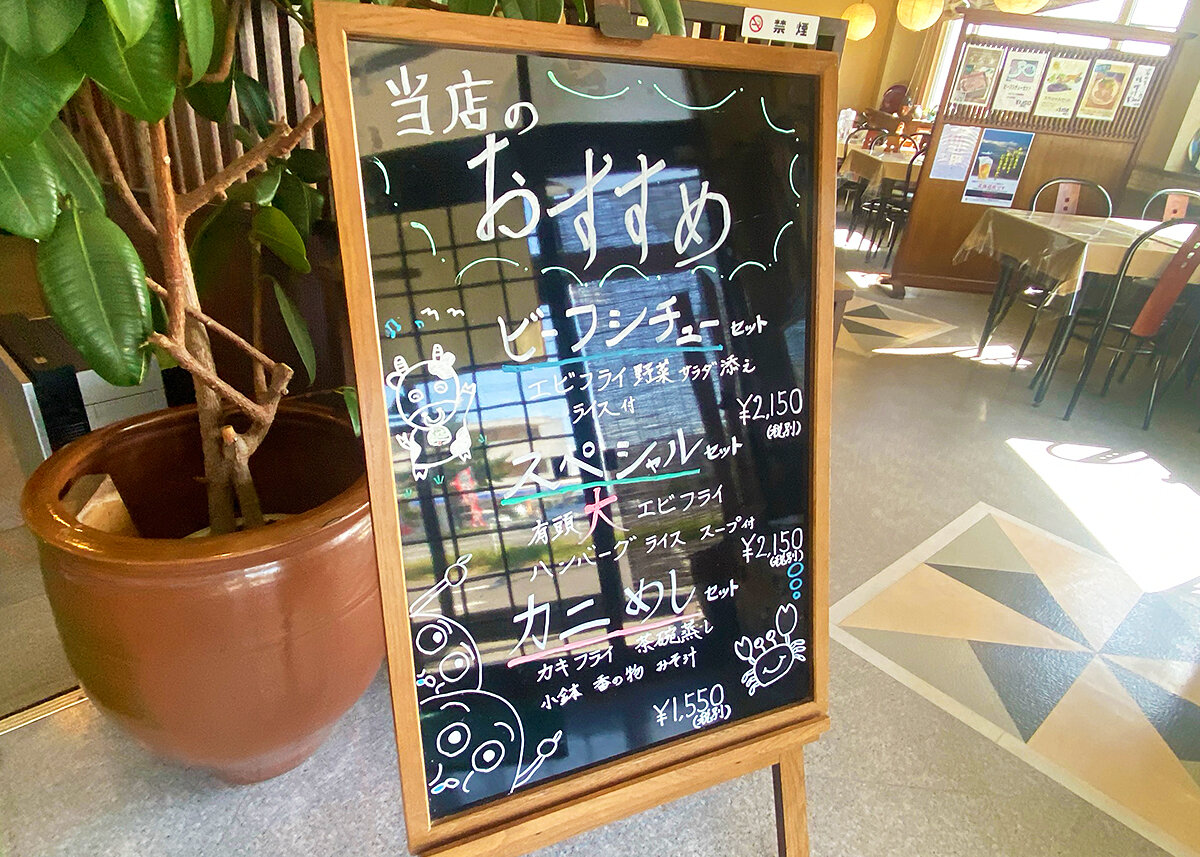 禁煙
当店の
おすすめ
ビーフシチューセット
エビフライ 野菜サラダ添え
ライス付
¥2,150
(税別)
スペシャルセット
有頭大エビフライ
ハンバーグ ライス スープ付
¥2,150
(税別)
カニめしセット
カキフライ 茶碗蒸し
小鉢 香の物 みそ汁
¥1,550
(税別)